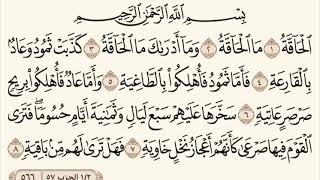 بِسْمِ اللَّهِ الرَّحْمَٰنِ الرَّحِيمِ
الْحَاقَّةُ ١ مَا الْحَاقَّةُ ٢ وَمَا أَدْرَاكَ مَا الْحَاقَّةُ ٣ كَذَّبَتْ ثَمُودُ وَعَادٌ
بِالْقَارِعَةِ ٤ فَأَمَّا ثَمُودُ فَأُهْلِكُوا بِالطَّاغِيَةِ ٥ وَأَمَّا عَادٌ فَأُهْلِكُوا بِرِيحٍ
صَرْصَرٍ عَاتِيَةٍ ٦ سَخَّرَهَا عَلَيْهِمْ سَبْعَ لَيَالٍ وَثَمَانِيَةَ أَيَّامٍ حُسُومًا فَتَرَى
الْقَوْمَ فِيهَا صَرْعَىٰ كَأَنَّهُمْ أَعْجَازُ نَخْلٍ خَاوِيَةٍ ٧ فَهَلْ تَرَىٰ لَهُمْ مِنْ بَاقِيَةٍ ٨
١/٢ الحزب ٥٧ ٥٦٦